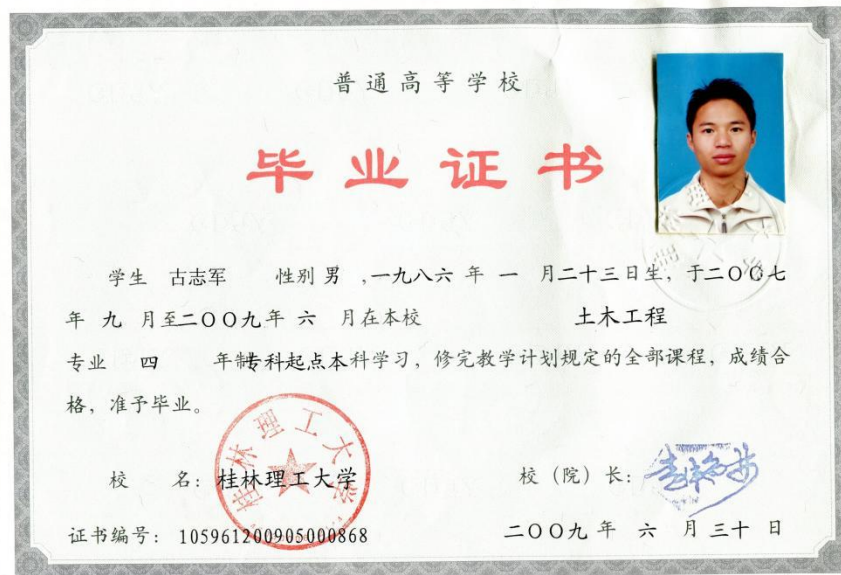 普通高等学校
毕业证书
学生 古志军 性别 男 ,一九八六 年 一 月二十三日生，于二〇〇七
年 九 月至二〇〇九年 六 月在本校 土木工程
专业 四 年制专科起点本科学习，修完教学计划规定的全部课程，成绩合
格，准予毕业。
桂林理工大学
校 名：桂林理工大学 校（院）长：
证书编号： 105961200905000868 二〇〇九 年 六 月 三十 日